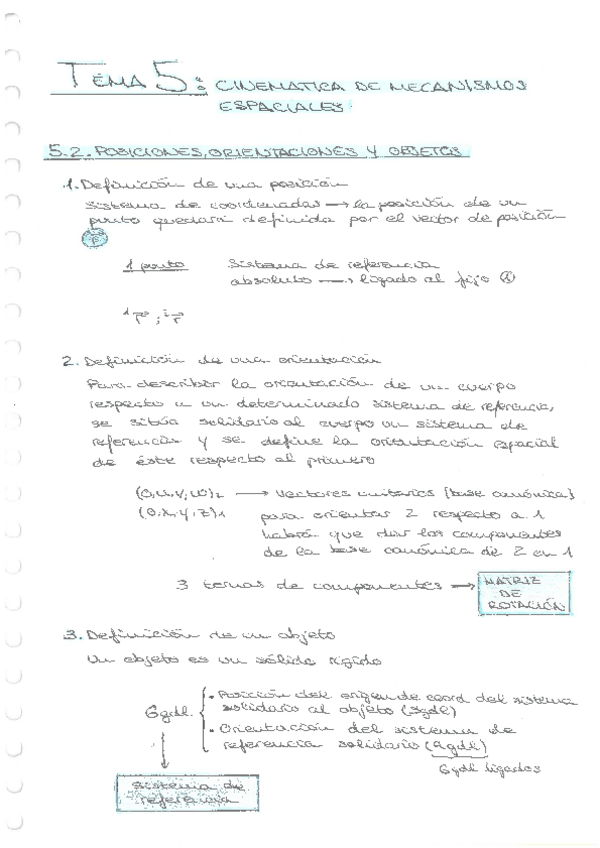 TEMA 5: CINEMATICA DE MECANISMOS
ESPACIALES
5.2. POSICIONES, ORIENTACIONES Y OBJETOS
1. Definición de una posición
Sistema de coordenadas → la posición de un
punto quedará definida por el vector de posición
1 punto Sistema de referencia
absoluto → ligado al fijo ①
2. Definición de una orientación
Para describir la orientación de un cuerpo
respecto a un determinado sistema de referencia,
se sitúa solidario al cuerpo un sistema de
referencias y se define la orientación espacial
de éste respecto al primero
(O,u,v,w)₂ → vectores unitarios (base canónica)
(O,x,y,z)₁ para orientar 2 respecto a 1
habrá que dar las componentes
de la base canónica de 2 en 1
3 ternas de componentes → MATRIZ
DE
ROTACIÓN
3. Definición de un objeto
Un objeto es un sólido rígido
6gdl. { • Posición del origen de coord del sistema
solidario al objeto (3gdl)
• Orientación del sistema de
referencia solidario (9gdl)
6gdl ligados
sistema de
referencia